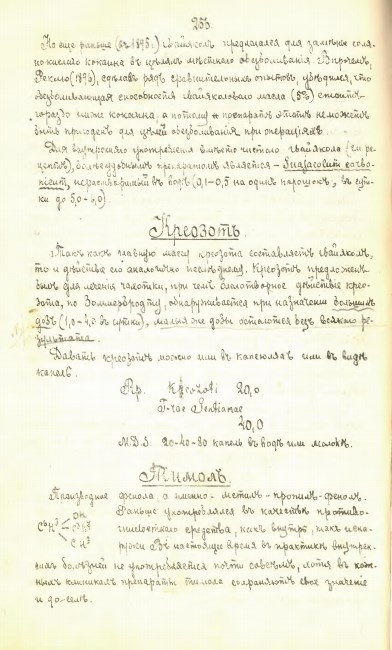 255
Но еще раньше (въ 1895 г.) гваякол предлагался для замѣны соля-
нокислаго кокаина въ цѣляхъ мѣстнаго обезболиванія. Впрочемъ,
Реклю (1896), сдѣлавъ рядъ сравнительныхъ опытовъ, убѣдился, что
обезболивающая способность гваяколоваго масла (5%) стоитъ
гораздо ниже кокаина, а потому препаратъ этотъ не можетъ
быть пригоденъ для цѣлей обезболиванія при операціяхъ.
Для внутренняго употребленія вмѣсто чистаго гваякола (см. ре-
цептъ), болѣе удобнымъ препаратомъ является — Guajacolum carbo-
nicum, нерастворимый въ водѣ (0,1-0,5 на одинъ порошокъ, въ сут-
ки до 5,0
Креозотъ
Такъ какъ главную массу креозота составляетъ гваяколъ,
то и дѣйствіе его аналогично послѣднему. Креозотъ предложен
былъ для леченія чахотки, при чемъ благотворное дѣйствіе крео-
зота, по Зоммербродту, обнаруживается при назначеніи большихъ
дозъ (1,0-4,0 въ сутки), малыя же дозы остаются безъ всякаго ре-
зультата.
Давать креозотъ можно или въ капсюляхъ или въ видѣ
капель.
Rp. Kreozoti 20,0
T-rae Gentianae
20,0
M.D.S. 20-40-80 капель въ водѣ или молокѣ.
Тимолъ.
Производное фенола, а именно - метил-пропил-фенол.
Раньше употреблялся въ качествѣ противо-
OH
C⁶H³ C³H⁷
CH³
глистнаго средства, какъ внутрь, такъ и сна-
ружи. Въ настоящее время въ практикѣ внутрен-
нихъ болѣзней не употребляется почти совсѣмъ, хотя въ кож-
ныхъ клиникахъ препараты тимола сохраняютъ свое значеніе
и до селѣ.